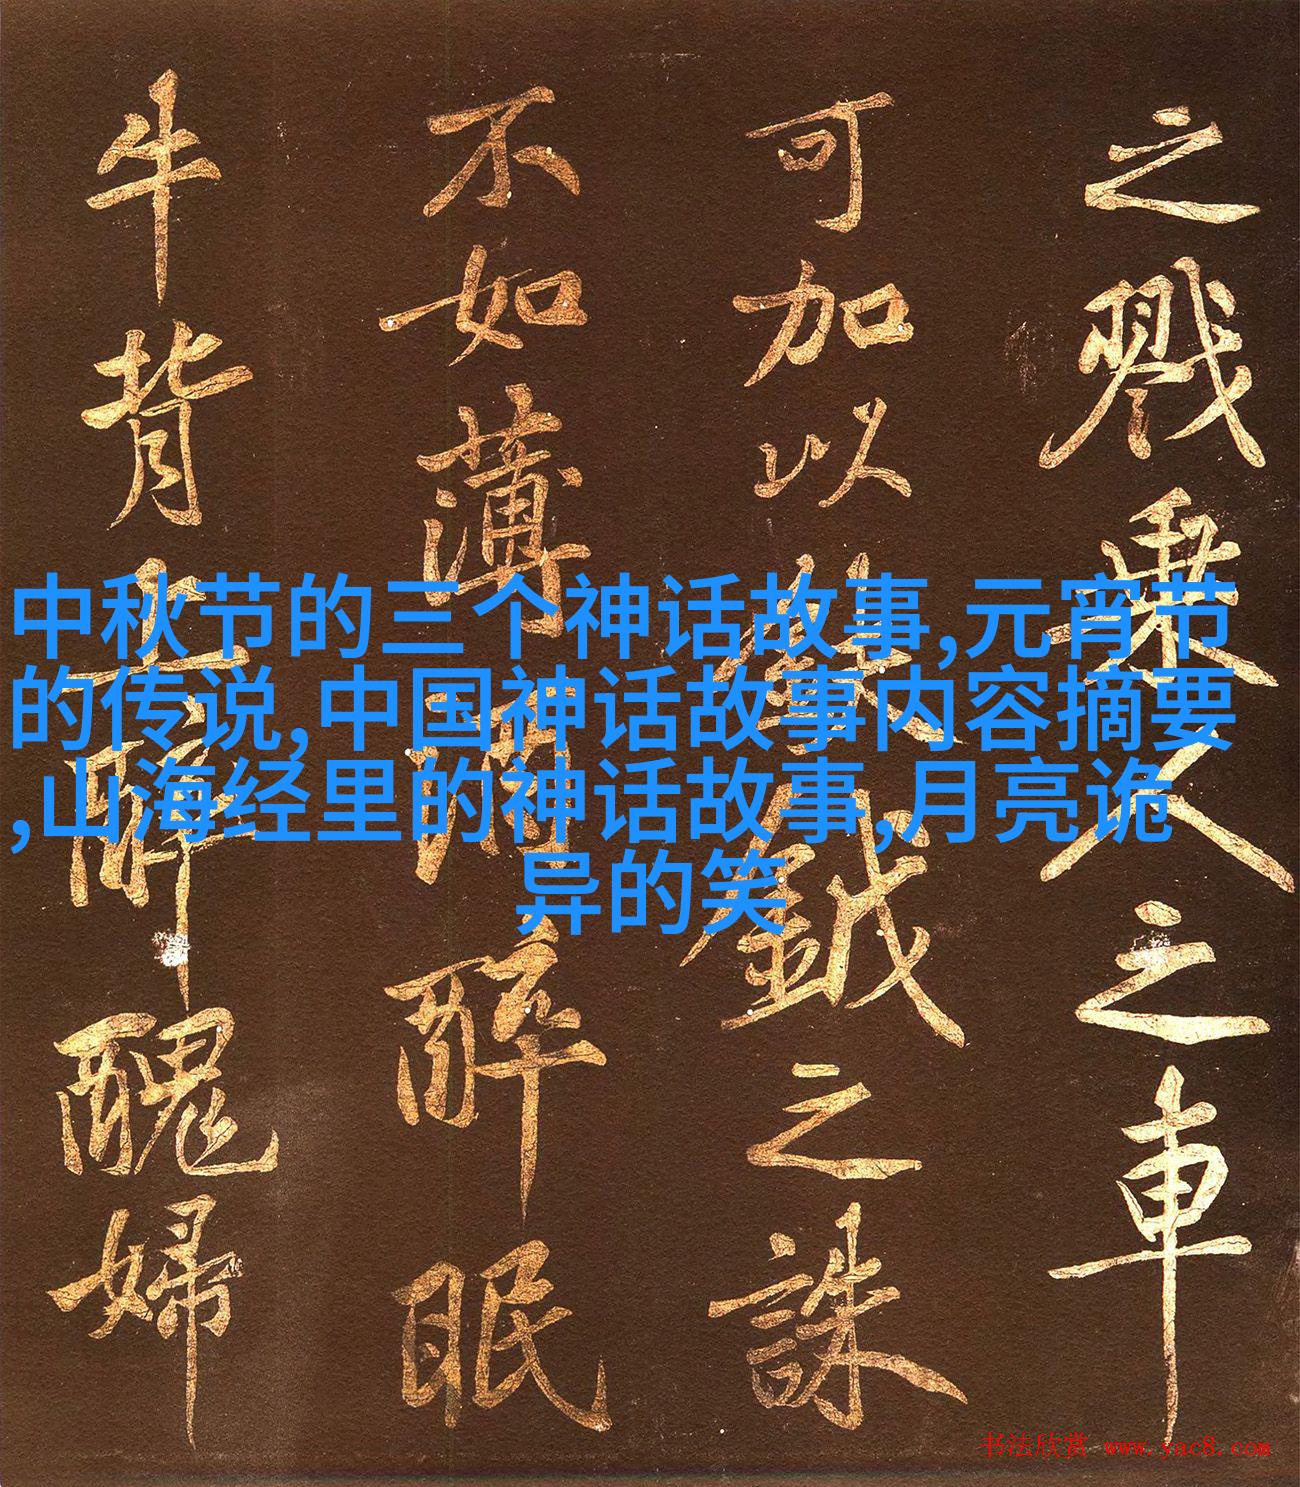 之戮乘人之車
可加以鉞之誅
不如薄酒醉眠
牛背上醉醜婦
中秋节的三个神话故事,元宵节
的传说,中国神话故事内容摘要
,山海经里的神话故事,月亮诡
异的笑
书法欣赏 www.yac8.com